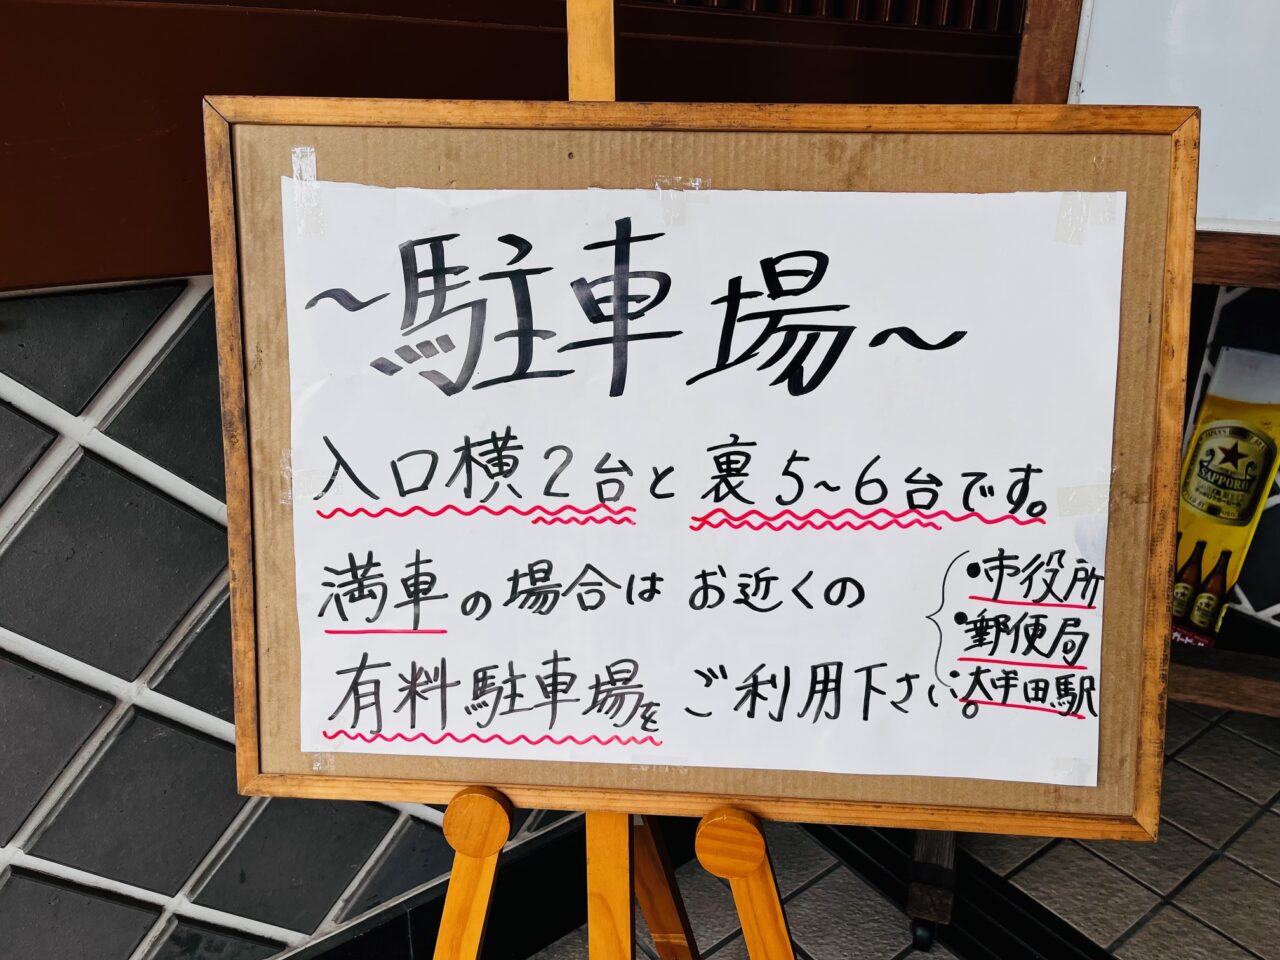 ～駐車場～
入口横2台と裏5～6台です。
満車の場合はお近くの
有料駐車場をご利用下さい。
・市役所
・郵便局
・大牟田駅
SAPPORO